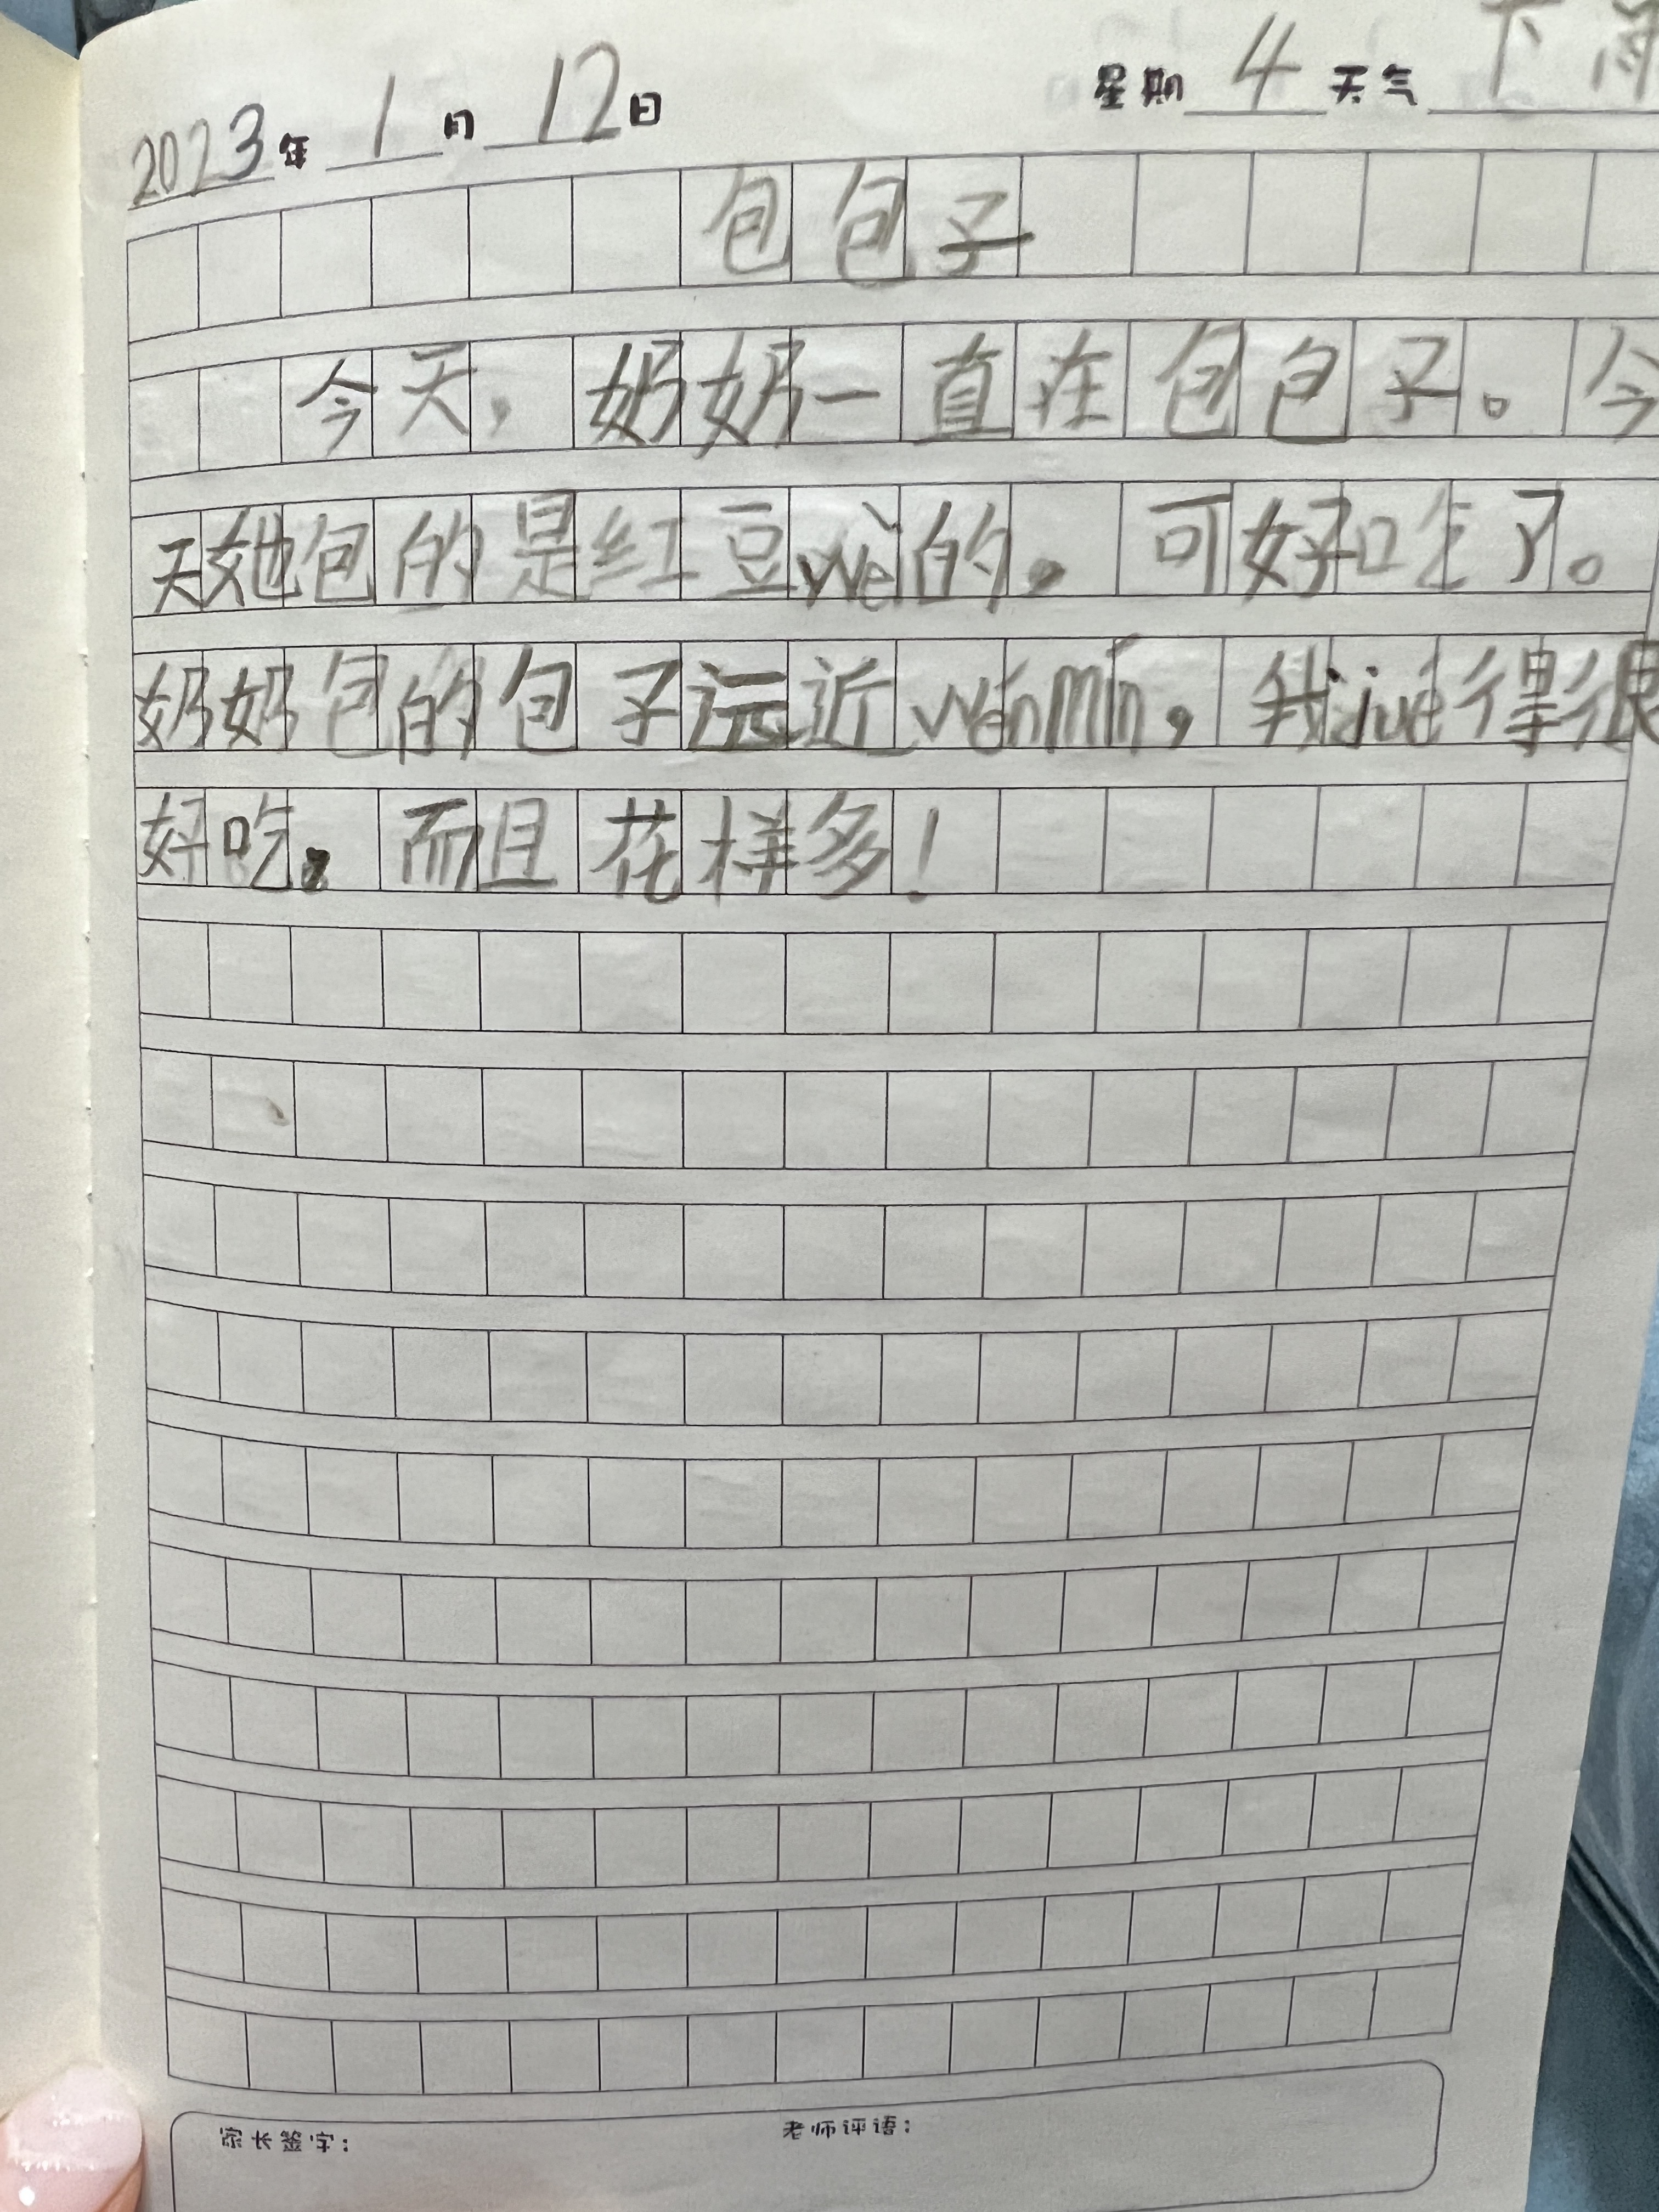 2023年 1月 12日 星期 4 天气 下雨
包包子
今天，奶奶一直在包包子。今
天她包的是红豆wèi的。可好吃了。
奶奶包的包子远近wénmín，我jué得很
好吃。而且花样多！
家长签字： 老师评语：